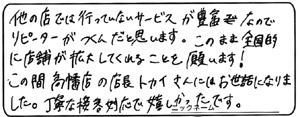 他の店では行っていないサービスが豊富なので
リピーターがつくんだと思います。このまま全国的
に店舗が拡大してくれることを願います!
この間高幡店の店長トカイさんにはお世話になりま
した。丁寧な接客対応で嬉しかったです。
ニックネーム